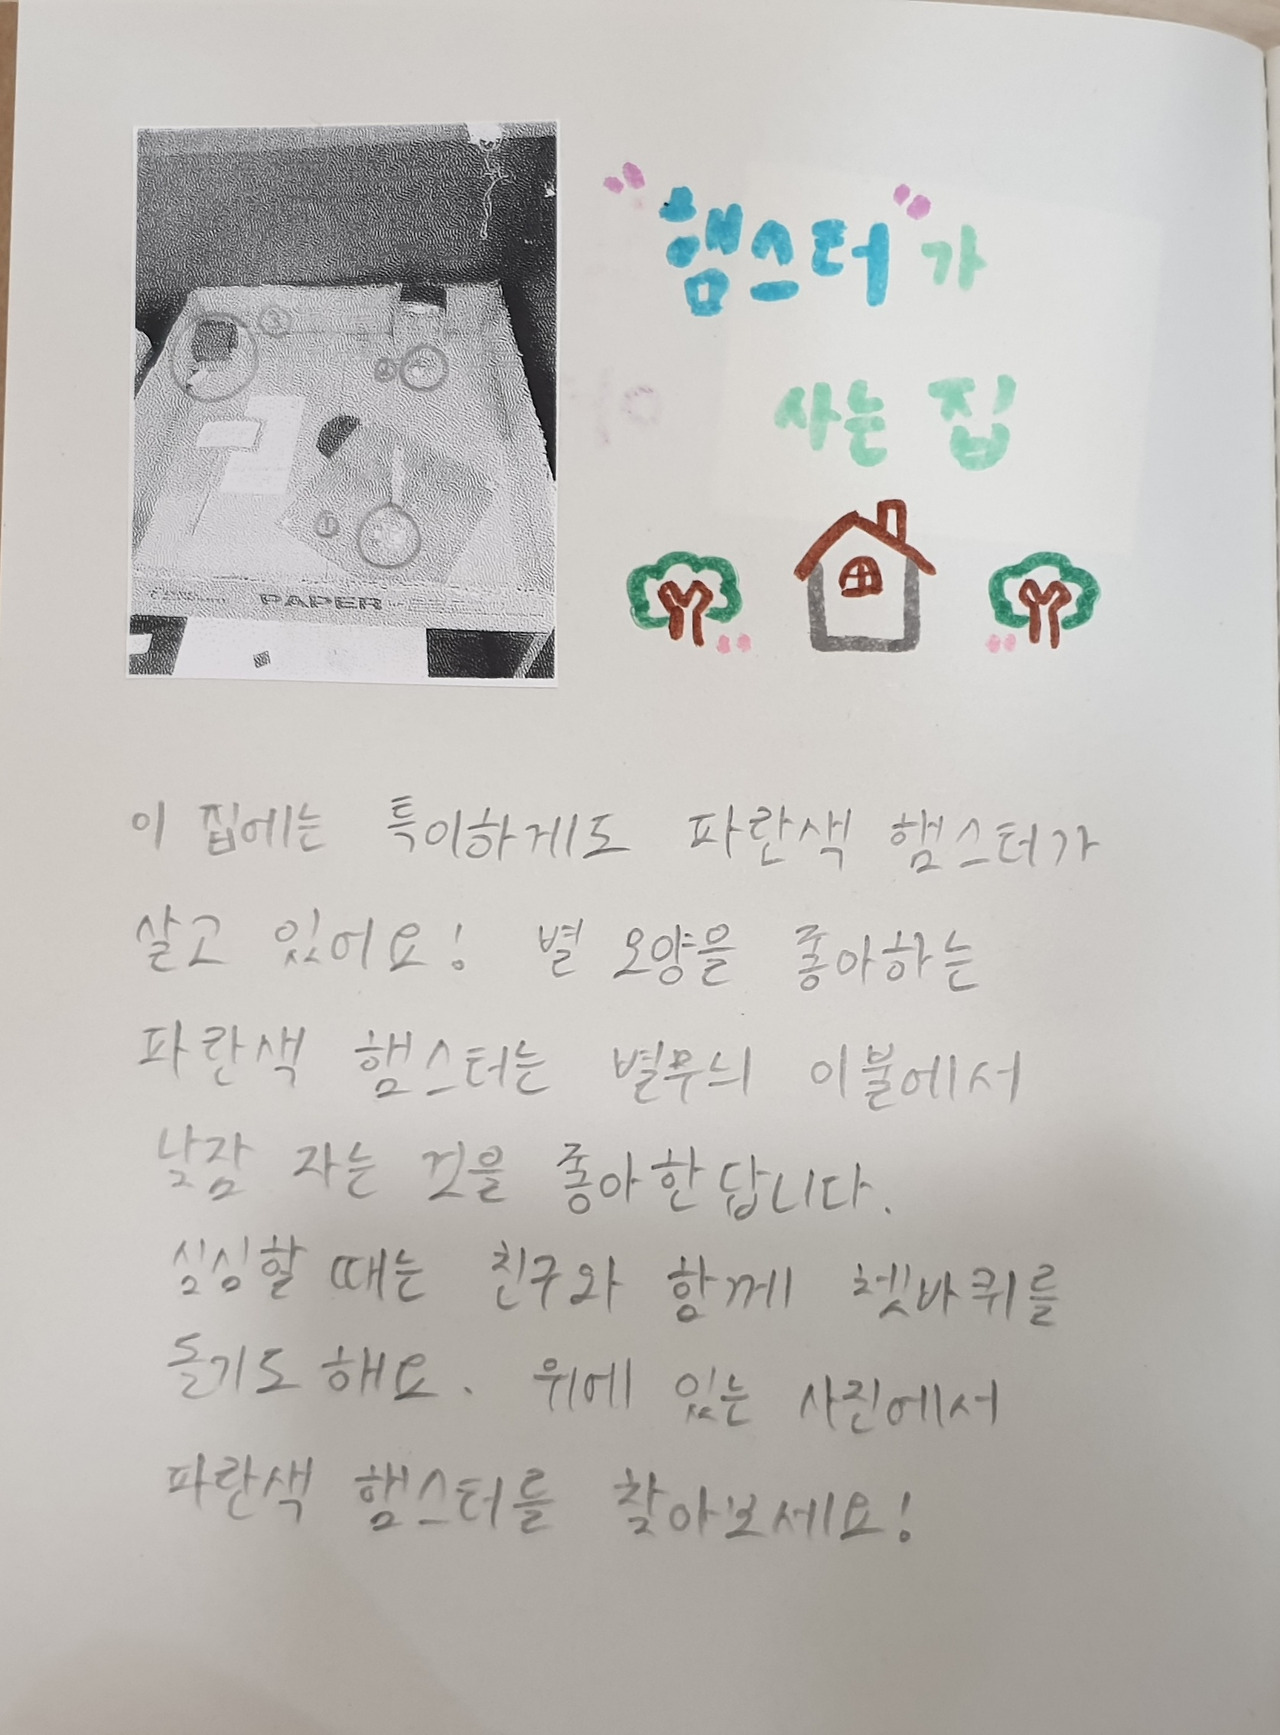 "햄스터"가
사는 집
③
②
①
PAPER
이 집에는 특이하게도 파란색 햄스터가
살고 있어요! 별 모양을 좋아하는
파란색 햄스터는 별무늬 이불에서
낮잠 자는 것을 좋아한답니다.
심심할 때는 친구와 함께 쳇바퀴를
돌기도 해요. 위에 있는 사진에서
파란색 햄스터를 찾아보세요!